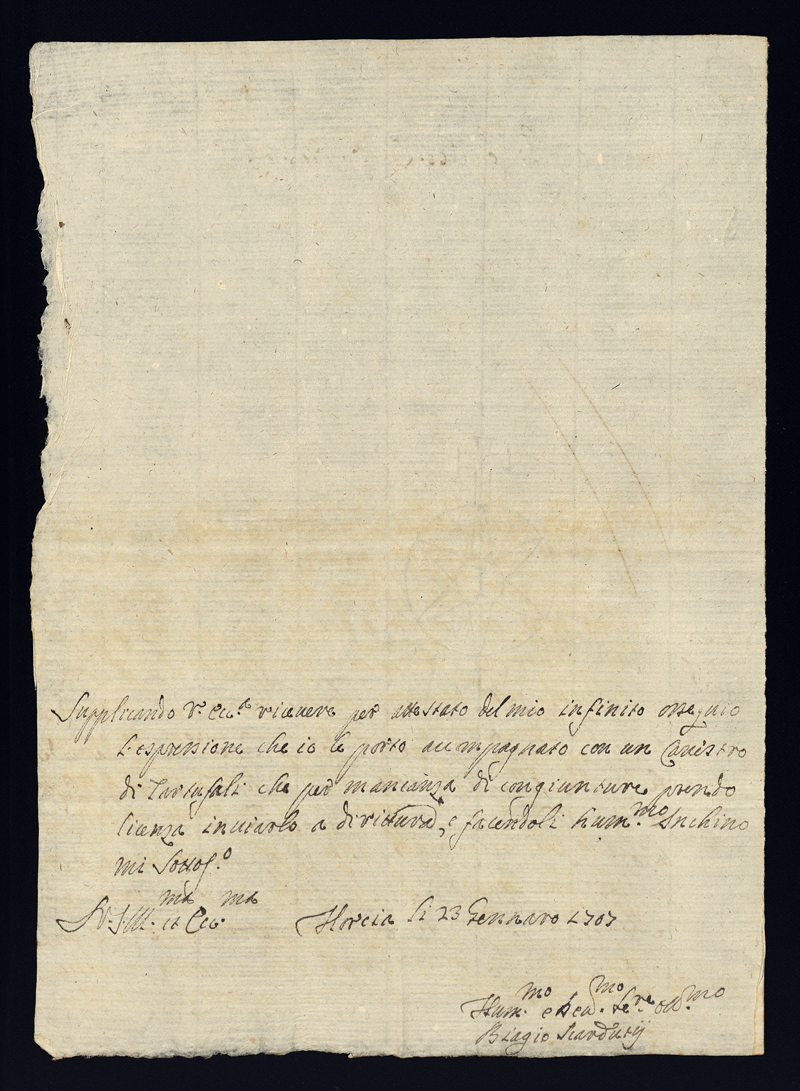 Supplicando V.ra Ecc.za ricevere per attestato del mio infinito ossequio
l'espressione che io le porto accompagnato con un Canestro
di Tartufali che per mancanza di congiunture prendo
licenza inviarlo a dirittura, e facendoli hum.mo Inchino
mi Sottos.o
V. Ill.ma et Ecc.ma Norcia li 23 Gennaro 1707
Hum.mo e Se.re obb.mo
Biagio